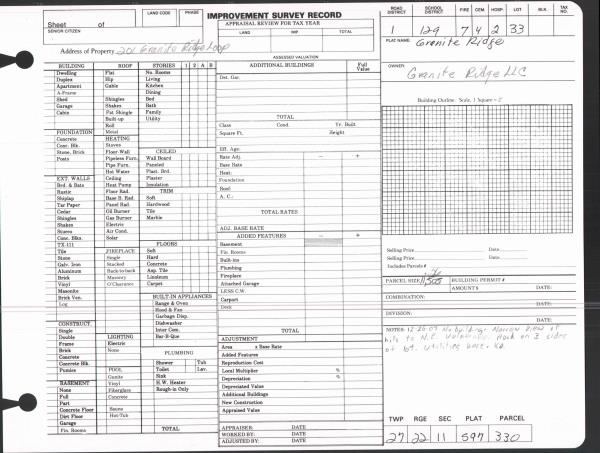 Sheet of
SENIOR CITIZEN
LAND CODE
PHASE
IMPROVEMENT SURVEY RECORD
APPRAISAL REVIEW FOR TAX YEAR
LAND IMP. TOTAL
ASSESSED VALUATION
Address of Property 201 Granite Ridge Loop
ROAD DISTRICT SCHOOL DISTRICT FIRE CEM HOSP. LOT BLK. TAX NO.
1 129 7 4 2 33
PLAT NAME
Granite Ridge
OWNER:
Granite Ridge LLC
Building Outline. Scale, 1 Square =
BUILDING ROOF STORIES 1 2 A B
Dwelling Flat No. Rooms
Duplex Hip Living
Apartment Gable Kitchen
A-Frame Dining
Shed Shingles Bed
Garage Shakes Bath
Cabin Pat. Shingle Family
Built-up Utility
Roll
FOUNDATION Metal
Concrete HEATING
Conc. Blk. Stoves
Stone, Brick Floor-Wall CEILED
Posts Pipeless Furn. Wall Board
Pipe Furn. Paneled
Hot Water Plast. Brd.
EXT. WALLS Ceiling Plaster
Brd. & Bats Heat Pump Insulation
Rustic Floor Rad. TRIM
Shiplap Base B. Rad. Soft
Tar Paper Panel Rad. Hardwood
Cedar Oil Burner Tile
Shingles Gas Burner Marble
Shakes Electric
Stucco Air Cond.
Conc. Blks. Solar
TX-111 FLOORS
Tile FIREPLACE Soft
Stone Single Hard
Galv. Iron Stacked Concrete
Aluminum Back-to-back Asp. Tile
Brick Masonry Linoleum
Vinyl O'Clearance Carpet
Masonite
Brick Ven. BUILT-IN APPLIANCES
Log Range & Oven
Hood & Fan
Garbage Disp.
CONSTRUCT. Dishwasher
Single Inter Com.
Double LIGHTING Bar-B-Que
Frame Electric
Brick None PLUMBING
Concrete
Concrete Blk. Shower Tub
Pumice POOL Toilet Lav.
Gunite Sink
BASEMENT Vinyl H.W. Heater
None Fiberglass Rough-in Only
Full Concrete
Part
Concrete Floor Sauna
Dirt Floor Hot-Tub
Garage
Fin. Rooms TOTAL
ADDITIONAL BUILDINGS Full Value
Det. Gar.
TOTAL
Class Cond. Yr. Built
Square Ft. Height
Eff. Age.
Rate Adj. – +
Base Rate
Heat:
Foundation
Roof
A. C.
TOTAL RATES
ADJ. BASE RATE
ADDED FEATURES – +
Basement
Fin. Rooms
Built-ins
Plumbing
Fireplace
Attached Garage
LESS C.W.
Carport
Deck
TOTAL
ADJUSTMENT
Area x Base Rate
Added Features
Reproduction Cost
Local Multiplier %
Depreciation %
Depreciated Value
Additional Buildings
New Construction
Appraised Value
APPRAISER: DATE
WORKED BY: DATE
ADJUSTED BY: DATE
Selling Price Date
Selling Price Date
Includes Parcels
PARCEL SIZE 11,505 BUILDING PERMIT #
AMOUNT $ DATE:
COMBINATION: DATE:
DIVISION: DATE:
NOTES: 12-26-07 No building. Narrow view of
hills to N.E.
of lot. Utilities
TWP RGE SEC PLAT PARCEL
27 22 11 597 330